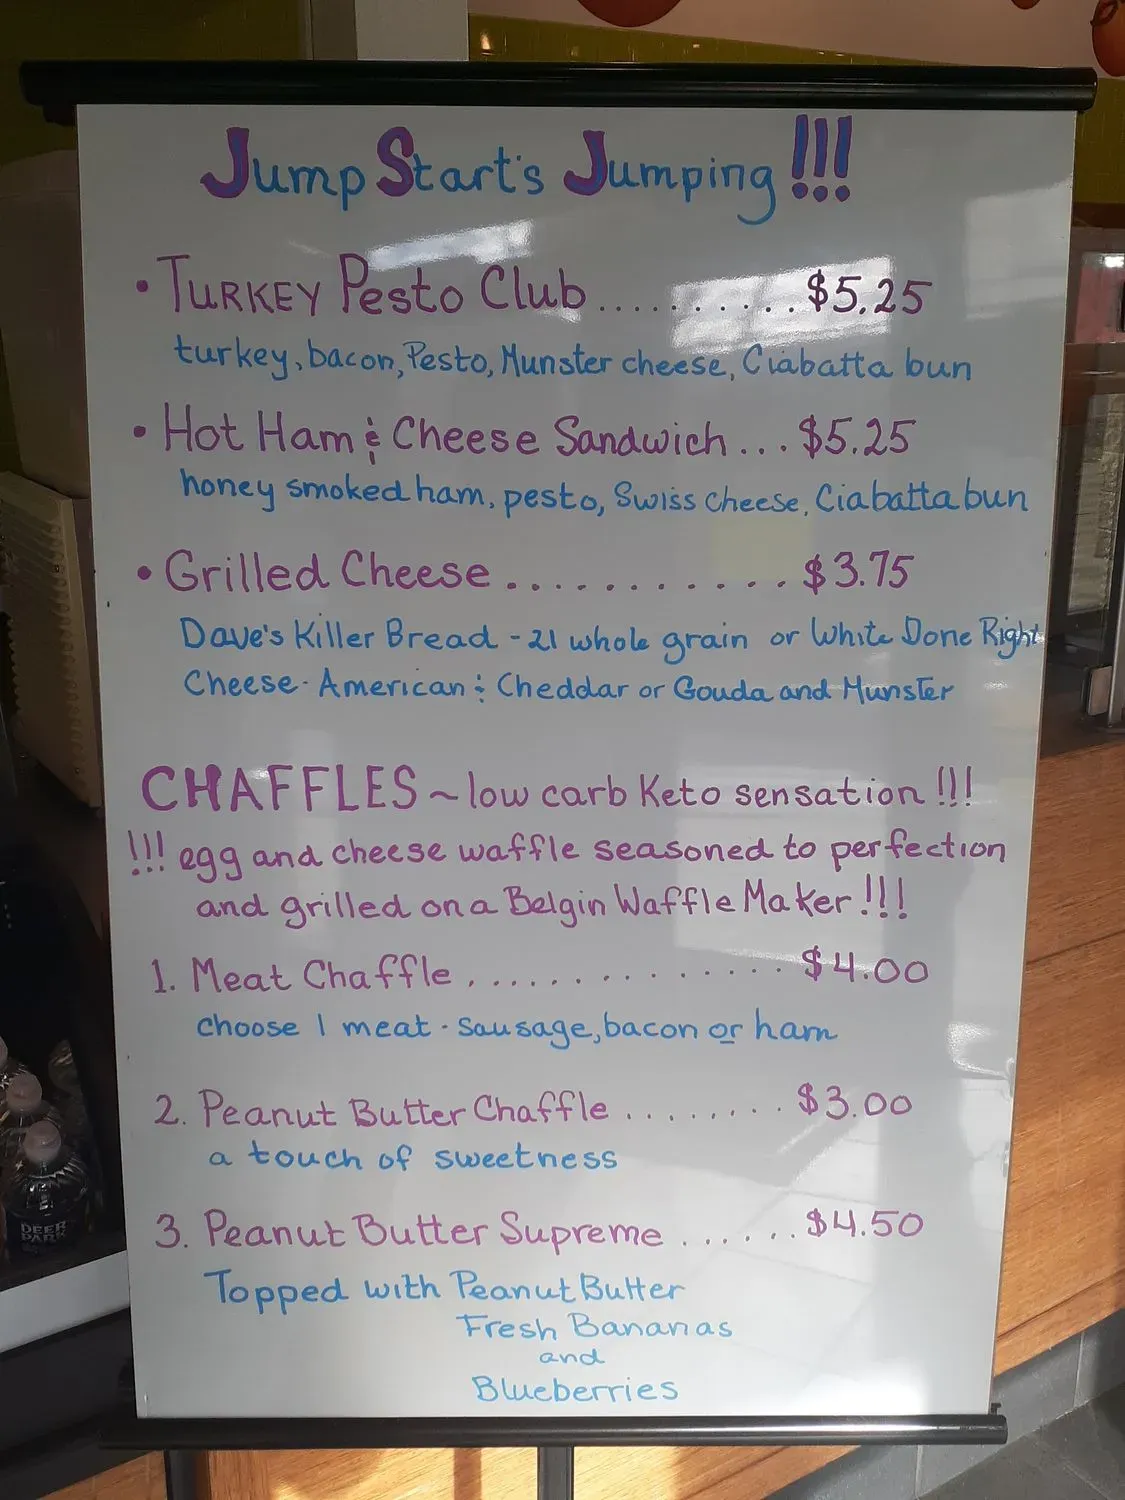 Jump Start's Jumping!!!
• TURKEY Pesto Club.......... $5.25
turkey, bacon, Pesto, Munster cheese, Ciabatta bun
• Hot Ham & Cheese Sandwich... $5.25
honey smoked ham, pesto, Swiss cheese, Ciabatta bun
• Grilled Cheese............ $3.75
Dave's Killer Bread - 21 whole grain or White Done Right
Cheese - American & Cheddar or Gouda and Munster
CHAFFLES ~ low carb Keto sensation!!!
!!! egg and cheese waffle seasoned to perfection
and grilled on a Belgin Waffle Maker!!!
1. Meat Chaffle.............. $4.00
choose 1 meat - sausage, bacon or ham
2. Peanut Butter Chaffle........ $3.00
a touch of sweetness
3. Peanut Butter Supreme...... $4.50
Topped with Peanut Butter
Fresh Bananas
and
Blueberries
DEER
PARK